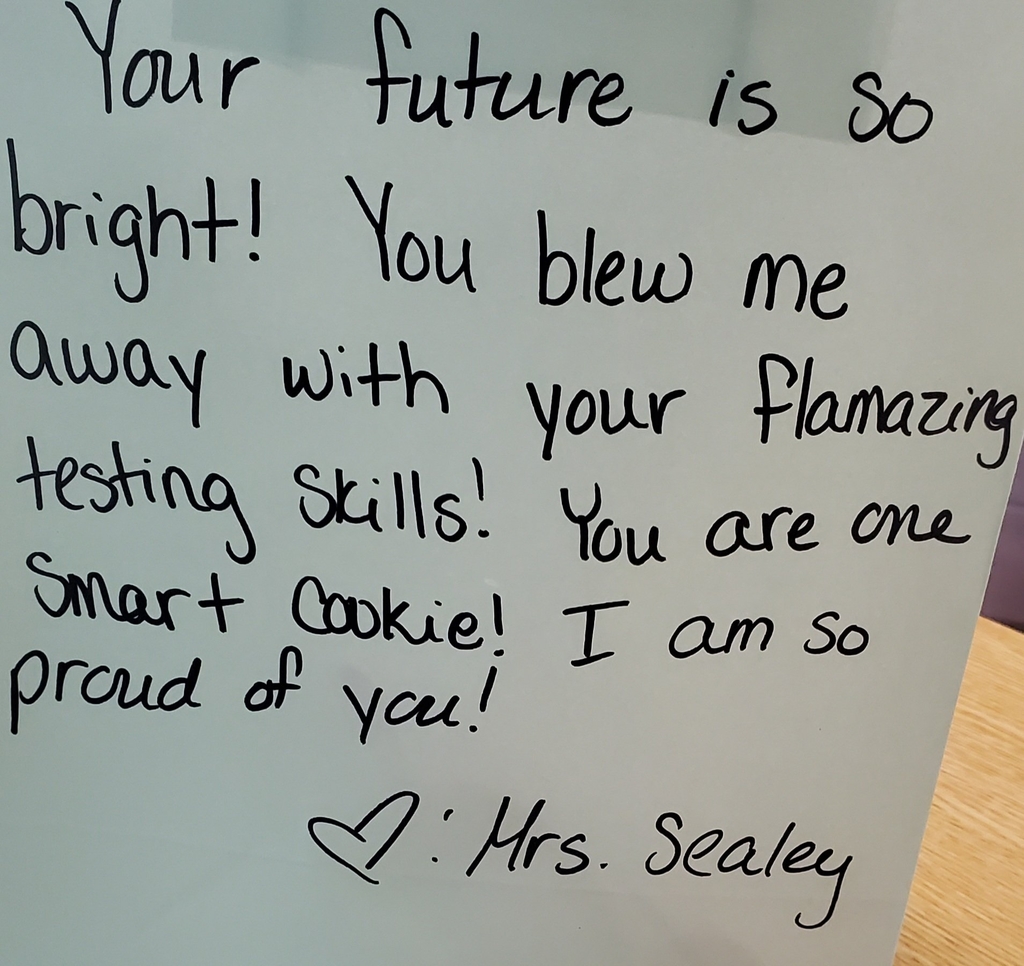 Your future is so
bright! You blew me
away with your flamazing
testing skills! You are one
smart cookie! I am so
proud of you!
♡: Mrs. Sealey